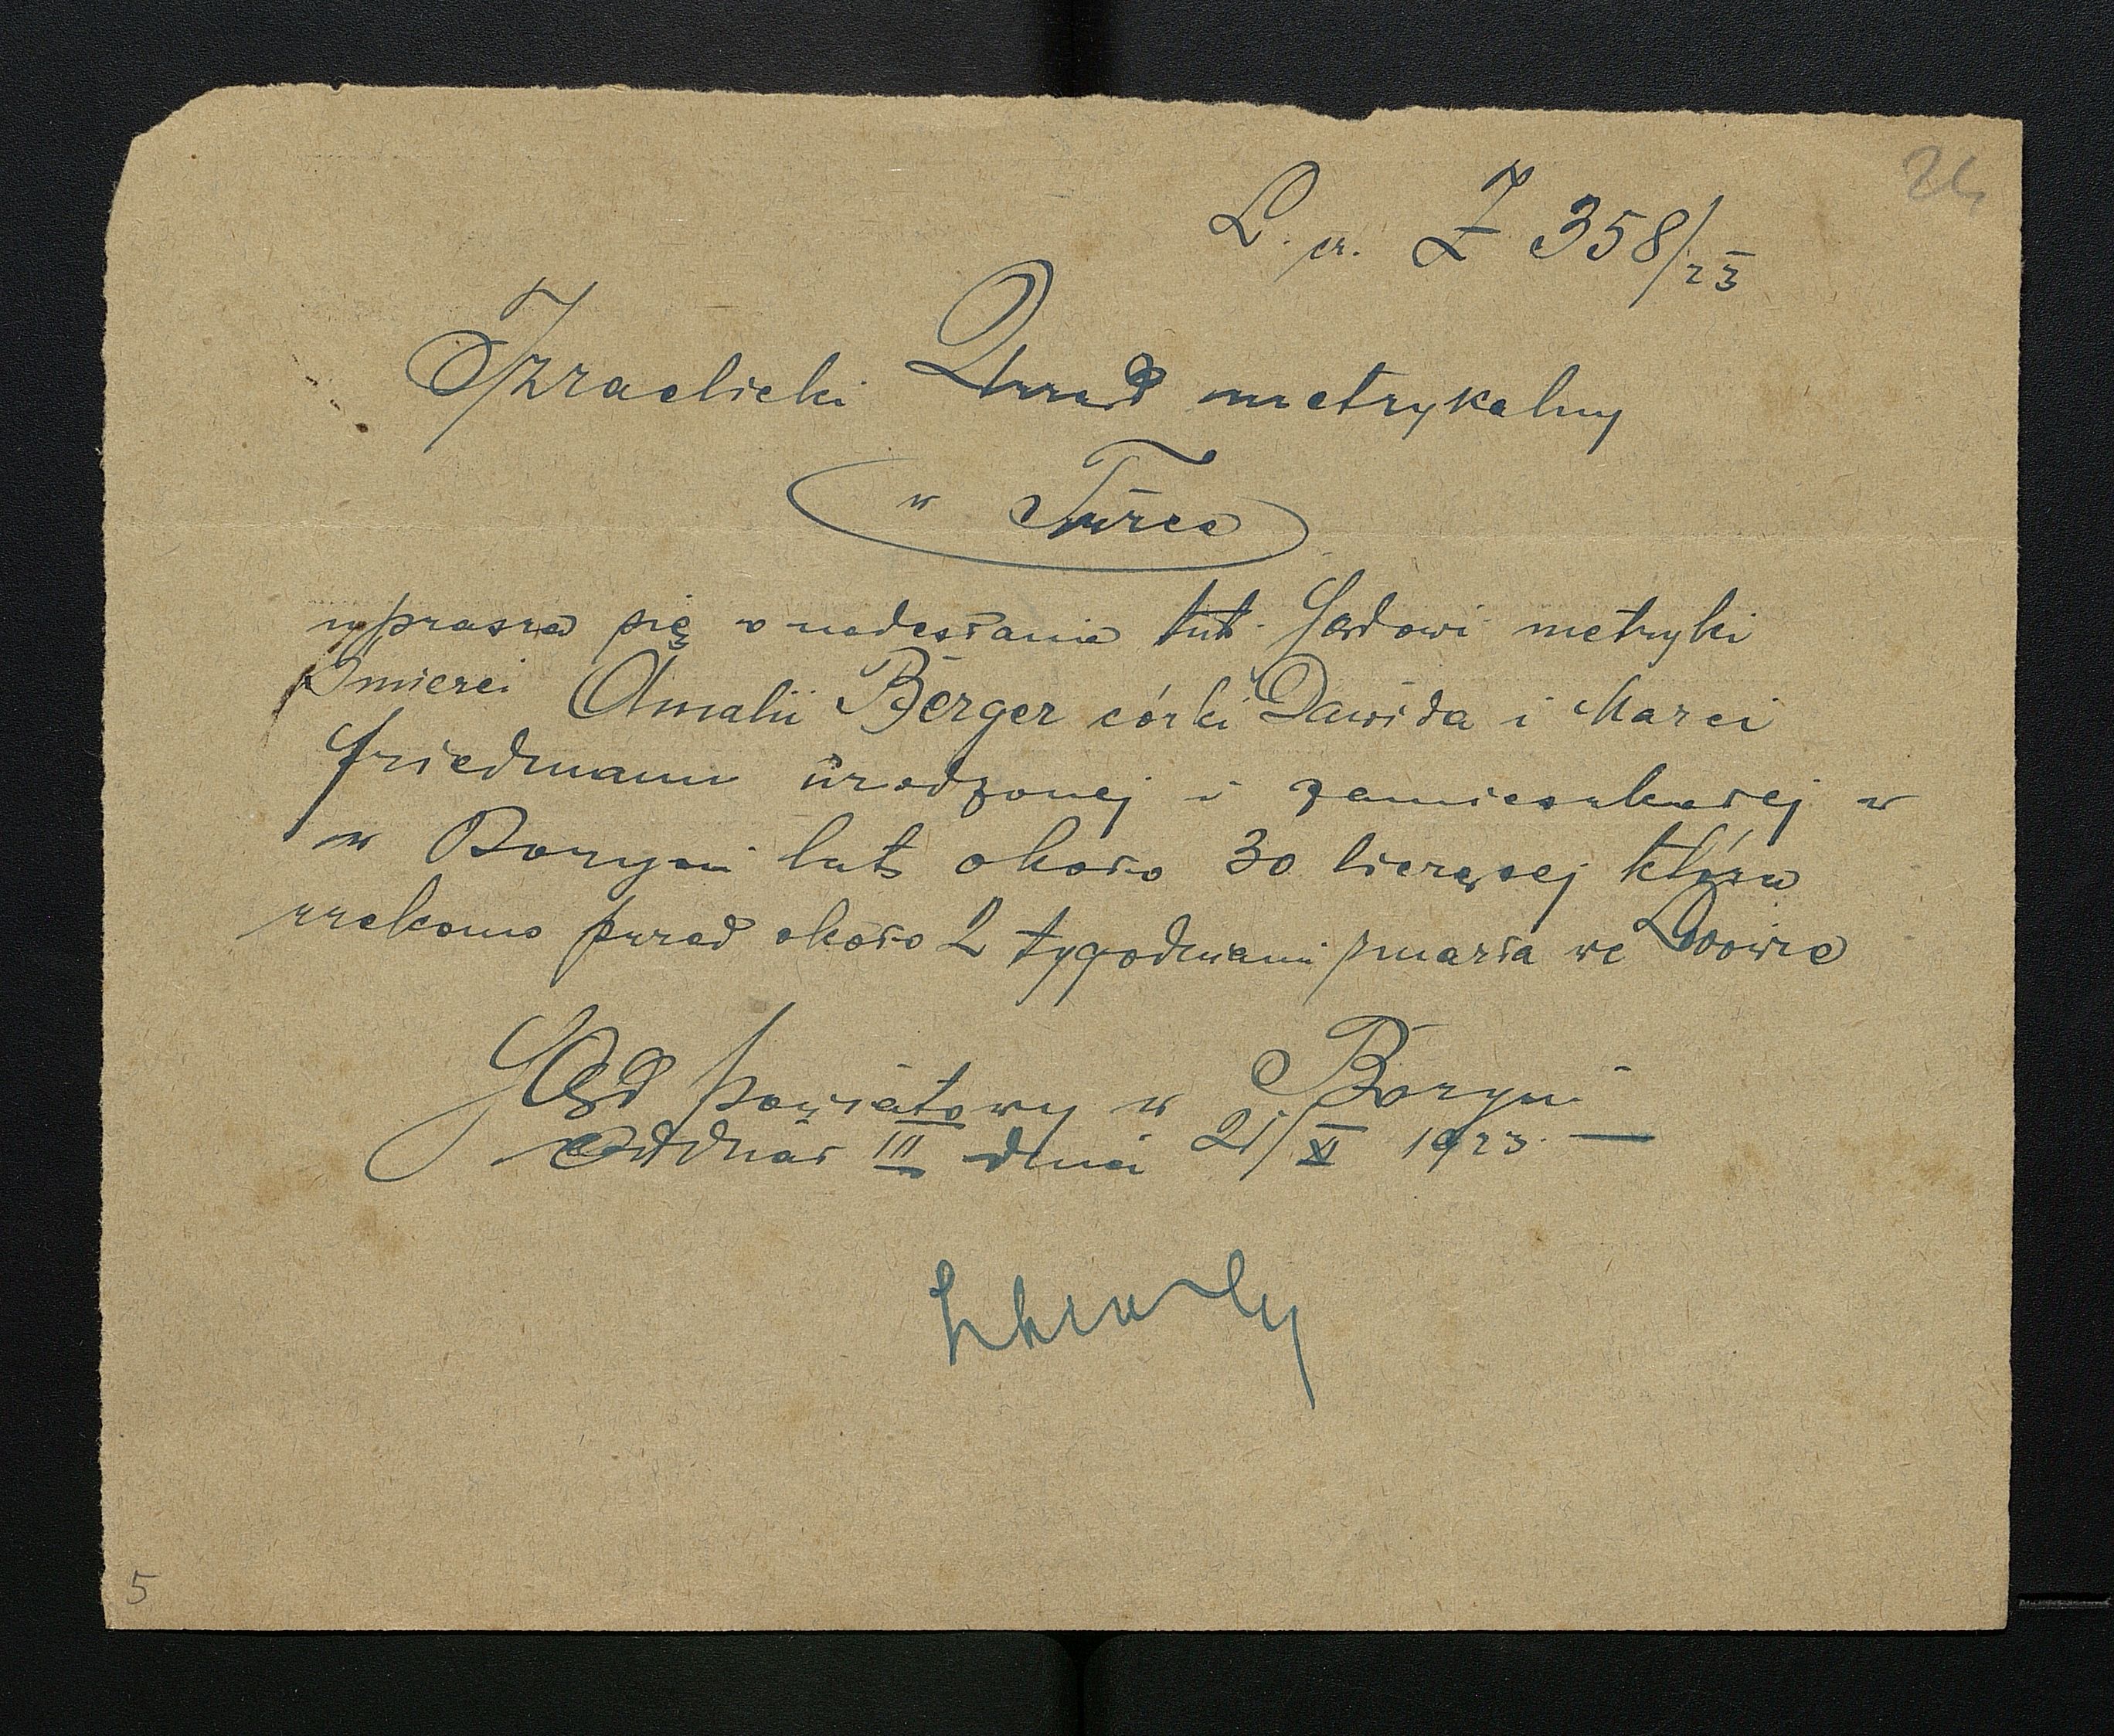 24
L. cz. Z 358/23
Izraelicki Urząd metrykalny
w Turce
uprasza się o nadesłanie tut. Sądowi metryki
śmierci Amalii Berger córki Dawida i Marci
Friedmann urodzonej i zamieszkałej w
w Boryni lat około 30 liczącej która
rzekomo przed około 2 tygodniami zmarła we Lwowie
Sąd powiatowy w Boryni
Oddział III dnia 21/XI 1923.
5